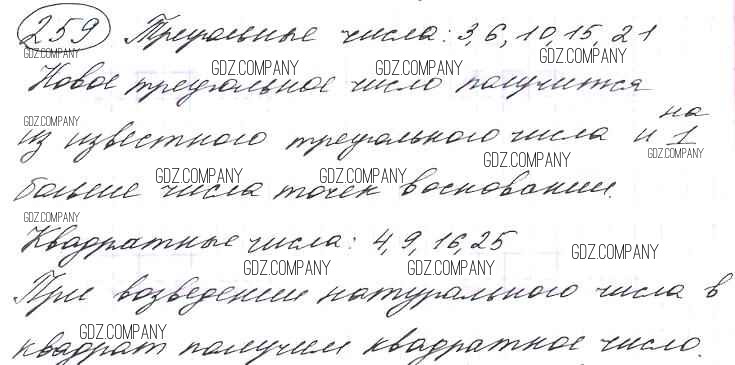 259 Треугольные числа: 3, 6, 10, 15, 21
GDZ.COMPANY
GDZ.COMPANY GDZ.COMPANY GDZ.COMPANY
Новое треугольное число получится
GDZ.COMPANY
на
из известного треугольного числа и 1
GDZ.COMPANY GDZ.COMPANY GDZ.COMPANY
GDZ.COMPANY GDZ.COMPANY
больше числа точек в основании.
GDZ.COMPANY
Квадратные числа: 4, 9, 16, 25
GDZ.COMPANY
GDZ.COMPANY GDZ.COMPANY
При возведении натурального числа в
GDZ.COMPANY
квадрат получим квадратное число.